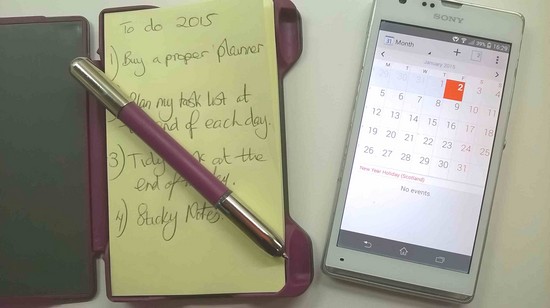 To do 2015
1) Buy a proper planner
Plan my task list at
end of each day.
3) Tidy at the
end of
4) Sticky Notes
SONY
39% 10:28
31 Month
January 2015
M T W T F S S
1 2 3 4
5 6 7 8 9 10 11
12 13 14 15 16 17 18
19 20 21 22 23 24 25
26 27 28 29 30 31
New Year Holiday (Scotland)
No events